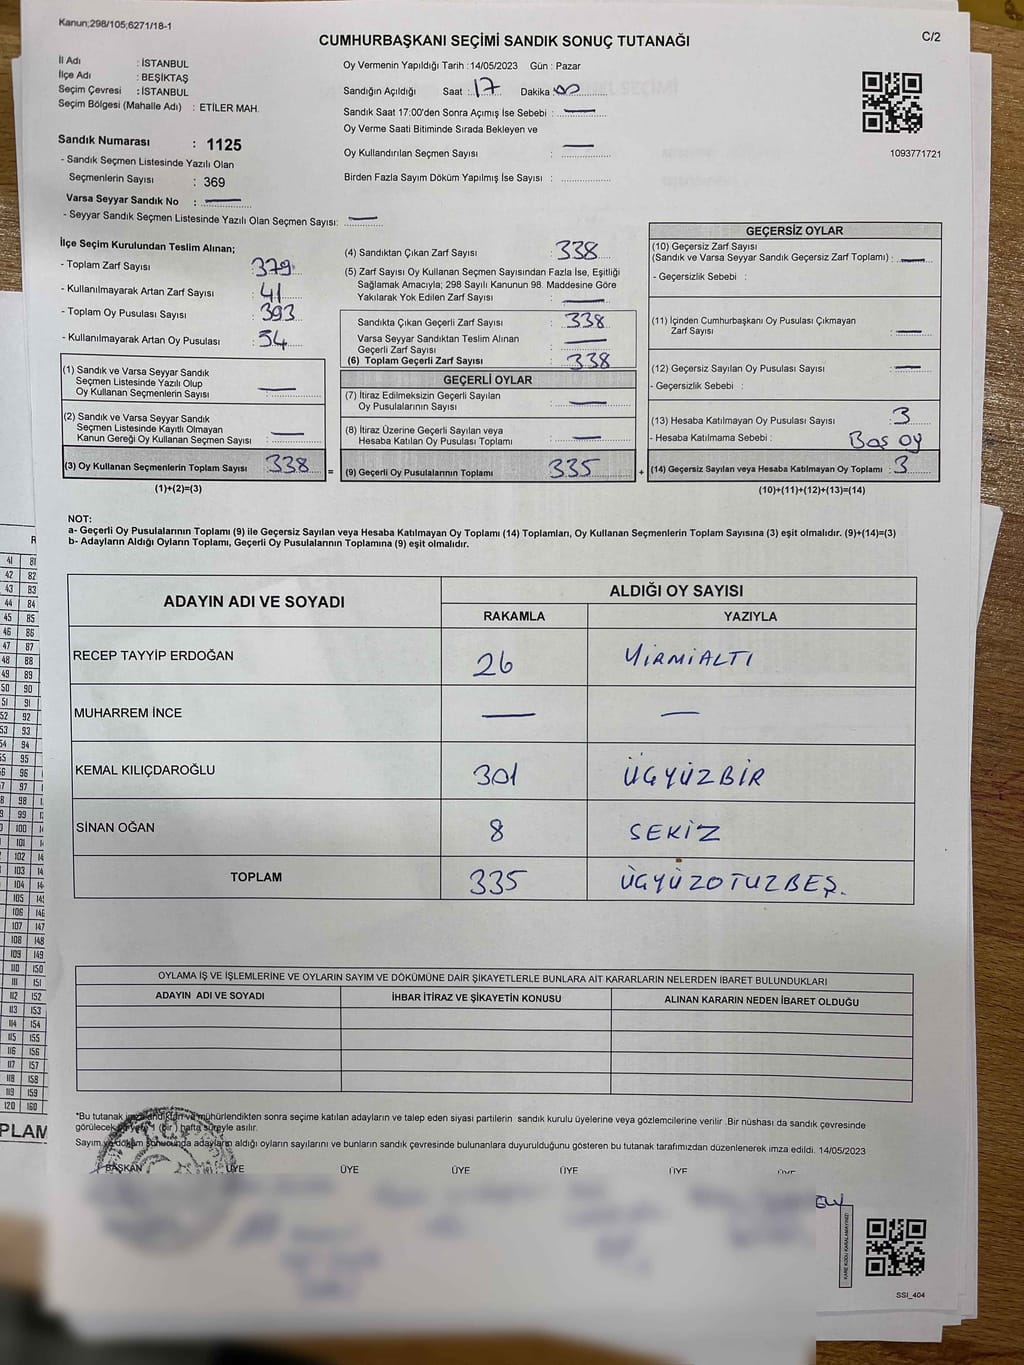 Kanun;298/105;6271/18-1
C/2
CUMHURBAŞKANI SEÇİMİ SANDIK SONUÇ TUTANAĞI
İl Adı : İSTANBUL
İlçe Adı : BEŞİKTAŞ
Seçim Çevresi : İSTANBUL
Seçim Bölgesi (Mahalle Adı) : ETİLER MAH.
Oy Vermenin Yapıldığı Tarih :14/05/2023 Gün : Pazar
Sandığın Açıldığı Saat : 17 Dakika : 00
Sandık Saat 17:00'den Sonra Açımış İse Sebebi : —
Oy Verme Saati Bitiminde Sırada Bekleyen ve
Oy Kullandırılan Seçmen Sayısı : —
Birden Fazla Sayım Döküm Yapılmış İse Sayısı :
1093771721
Sandık Numarası : 1125
- Sandık Seçmen Listesinde Yazılı Olan
Seçmenlerin Sayısı : 369
Varsa Seyyar Sandık No : —
- Seyyar Sandık Seçmen Listesinde Yazılı Olan Seçmen Sayısı: —
İlçe Seçim Kurulundan Teslim Alınan;
- Toplam Zarf Sayısı : 379
- Kullanılmayarak Artan Zarf Sayısı : 41
- Toplam Oy Pusulası Sayısı : 393
- Kullanılmayarak Artan Oy Pusulası : 54
(1) Sandık ve Varsa Seyyar Sandık
Seçmen Listesinde Yazılı Olup
Oy Kullanan Seçmenlerin Sayısı : —
(2) Sandık ve Varsa Seyyar Sandık
Seçmen Listesinde Kayıtlı Olmayan
Kanun Gereği Oy Kullanan Seçmen Sayısı : —
(3) Oy Kullanan Seçmenlerin Toplam Sayısı : 338 =
(1)+(2)=(3)
(4) Sandıktan Çıkan Zarf Sayısı : 338
(5) Zarf Sayısı Oy Kullanan Seçmen Sayısından Fazla İse, Eşitliği
Sağlamak Amacıyla; 298 Sayılı Kanunun 98. Maddesine Göre
Yakılarak Yok Edilen Zarf Sayısı : —
Sandıkta Çıkan Geçerli Zarf Sayısı : 338
Varsa Seyyar Sandıktan Teslim Alınan
Geçerli Zarf Sayısı : —
(6) Toplam Geçerli Zarf Sayısı : 338
GEÇERLİ OYLAR
(7) İtiraz Edilmeksizin Geçerli Sayılan
Oy Pusulalarının Sayısı : —
(8) İtiraz Üzerine Geçerli Sayılan veya
Hesaba Katılan Oy Pusulası Toplamı : —
(9) Geçerli Oy Pusulalarının Toplamı 335 +
GEÇERSİZ OYLAR
(10) Geçersiz Zarf Sayısı
(Sandık ve Varsa Seyyar Sandık Geçersiz Zarf Toplamı) : —
- Geçersizlik Sebebi :
(11) İçinden Cumhurbaşkanı Oy Pusulası Çıkmayan
Zarf Sayısı : —
(12) Geçersiz Sayılan Oy Pusulası Sayısı : —
- Geçersizlik Sebebi :
(13) Hesaba Katılmayan Oy Pusulası Sayısı : 3
- Hesaba Katılmama Sebebi : Boş oy
(14) Geçersiz Sayılan veya Hesaba Katılmayan Oy Toplamı : 3
(10)+(11)+(12)+(13)=(14)
NOT:
a- Geçerli Oy Pusulalarının Toplamı (9) ile Geçersiz Sayılan veya Hesaba Katılmayan Oy Toplamı (14) Toplamları, Oy Kullanan Seçmenlerin Toplam Sayısına (3) eşit olmalıdır. (9)+(14)=(3)
b- Adayların Aldığı Oyların Toplamı, Geçerli Oy Pusulalarının Toplamına (9) eşit olmalıdır.
ADAYIN ADI VE SOYADI ALDIĞI OY SAYISI
RAKAMLA YAZIYLA
RECEP TAYYİP ERDOĞAN 26 YİRMİALTI
MUHARREM İNCE — —
KEMAL KILIÇDAROĞLU 301 ÜÇYÜZBİR
SİNAN OĞAN 8 SEKİZ
TOPLAM 335 ÜÇYÜZOTUZBEŞ.
OYLAMA İŞ VE İŞLEMLERİNE VE OYLARIN SAYIM VE DÖKÜMÜNE DAİR ŞİKAYETLERLE BUNLARA AİT KARARLARIN NELERDEN İBARET BULUNDUKLARI
ADAYIN ADI VE SOYADI İHBAR İTİRAZ VE ŞİKAYETİN KONUSU ALINAN KARARIN NEDEN İBARET OLDUĞU
*Bu tutanak imzalandıktan ve mühürlendikten sonra seçime katılan adayların ve talep eden siyasi partilerin sandık kurulu üyelerine veya gözlemcilerine verilir .Bir nüshası da sandık çevresinde
görülecek bir yere 1 (bir) hafta süreyle asılır.
Sayım ve döküm sonucunda adayların aldığı oyların sayılarını ve bunların sandık çevresinde bulunanlara duyurulduğunu gösteren bu tutanak tarafımızdan düzenlenerek imza edildi. 14/05/2023
BAŞKAN ÜYE ÜYE ÜYE ÜYE ÜYE ÜYE
KARE KODU KARALAMAYINIZ!
SSI_404
41 81
42 82
43 83
44 84
45 85
46 86
47 87
48 88
49 89
50 90
51 91
52 92
53 93
54 94
55 95
96
97
98
99
100
101
102
103
104
105
106
107
108 148
109 149
110 150
111 151
112 152
113 153
114 154
115 155
116 156
117 157
118 158
119 159
120 160
PLAM